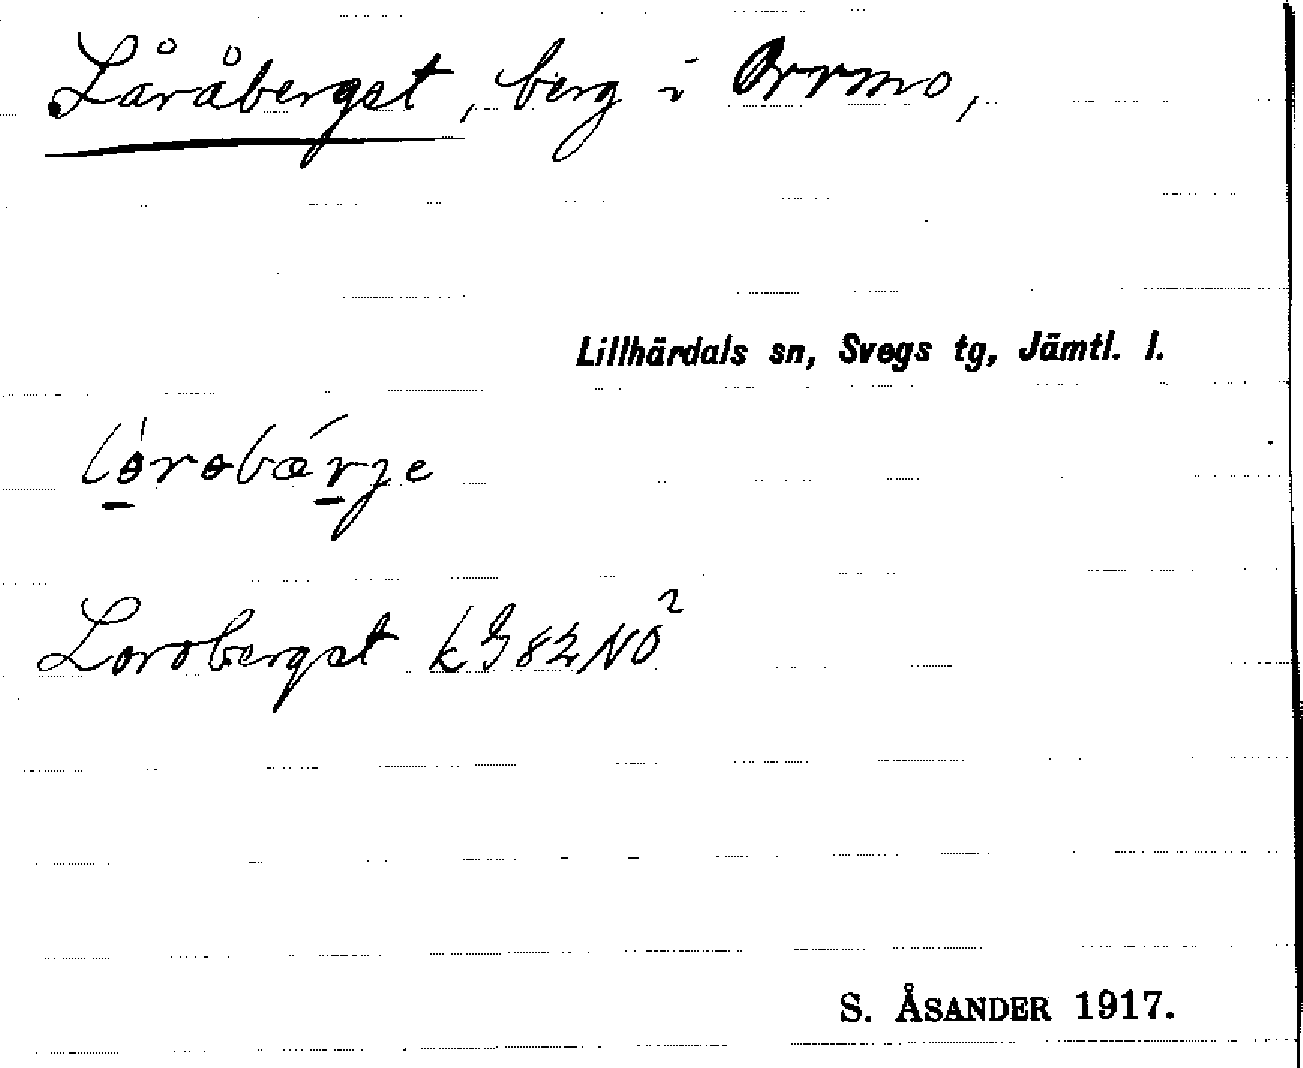 Låråberget, berg i Orrmo,
Lillhärdals sn, Svegs tg, Jämtl. l.
Loroberget k G 82 NO²
S. ÅSANDER 1917.